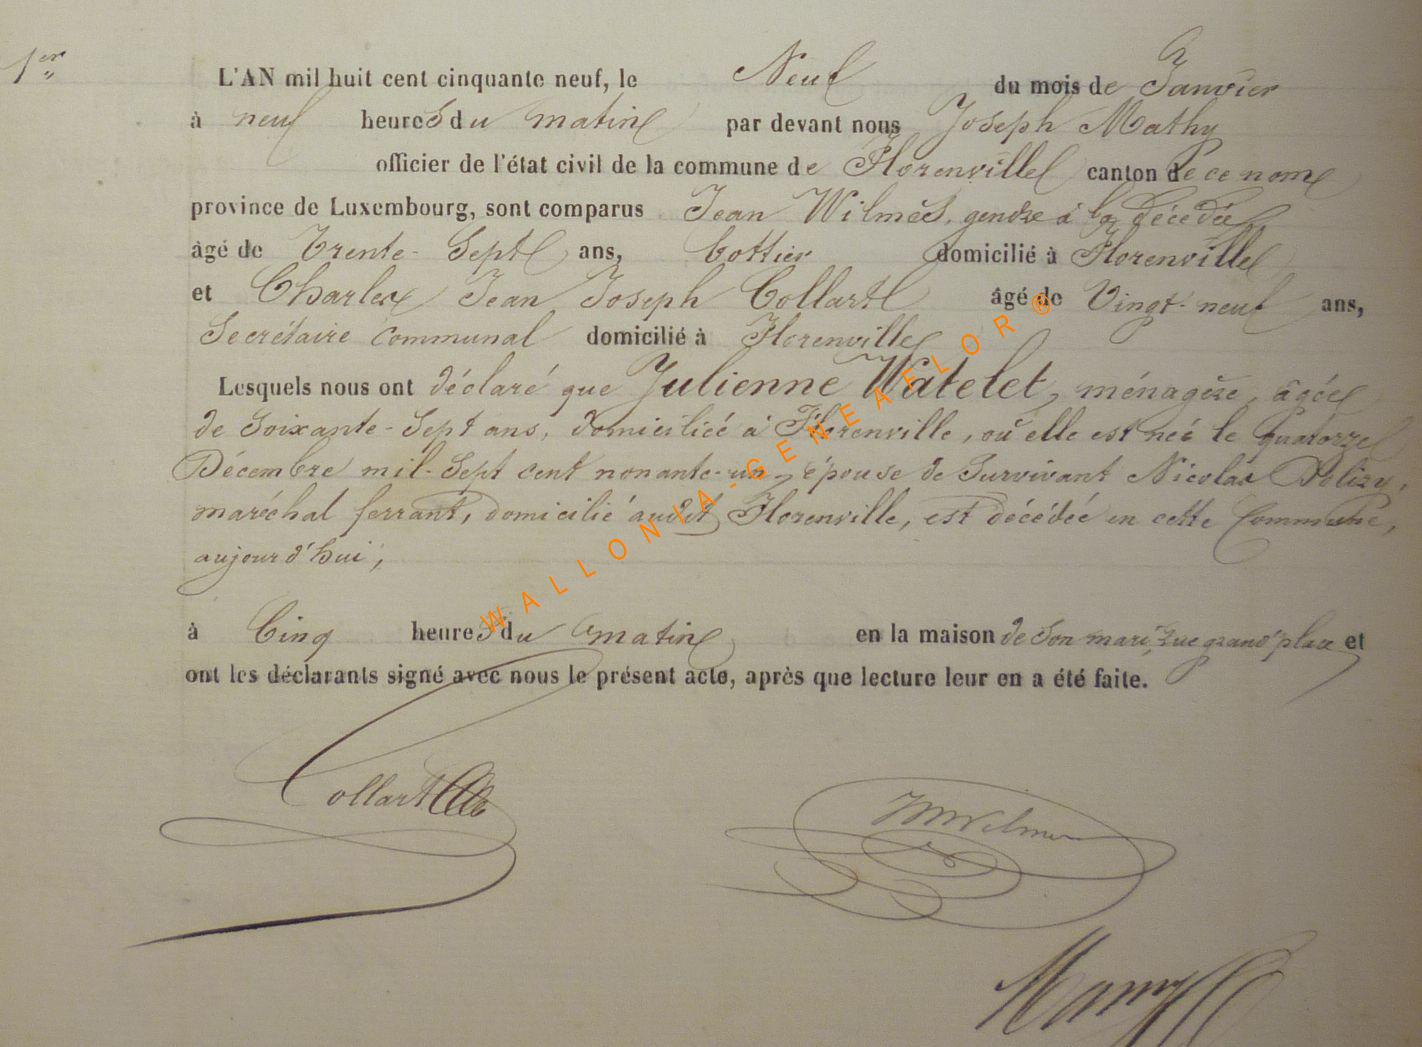 1er
L'AN mil huit cent cinquante neuf, le Neuf du mois de Janvier
à neuf heures du matin par devant nous Joseph Mathy
officier de l'état civil de la commune de Florenville canton de ce nom
province de Luxembourg, sont comparus Jean Wilmès, gendre à la décédée
âgé de Trente-Sept ans, Cottier domicilié à Florenville
et Charles Jean Joseph Collart âgé de Vingt-neuf ans,
Secrétaire communal domicilié à Florenville
Lesquels nous ont déclaré que Julienne Watelet, ménagère, âgée
de Soixante-Sept ans, domiciliée à Florenville, où elle est née le quatorze
Décembre mil-Sept cent nonante-un, épouse de Survivant Nicolas
maréchal ferrant, domicilié audit Florenville, est décédée en cette Commune,
aujourd'hui,
à Cinq heures du matin en la maison de Son mari, rue grand'place et
ont les déclarants signé avec nous le présent acte, après que lecture leur en a été faite.
Collart
JWilmes
WALLONIA-GENEAFLOR®